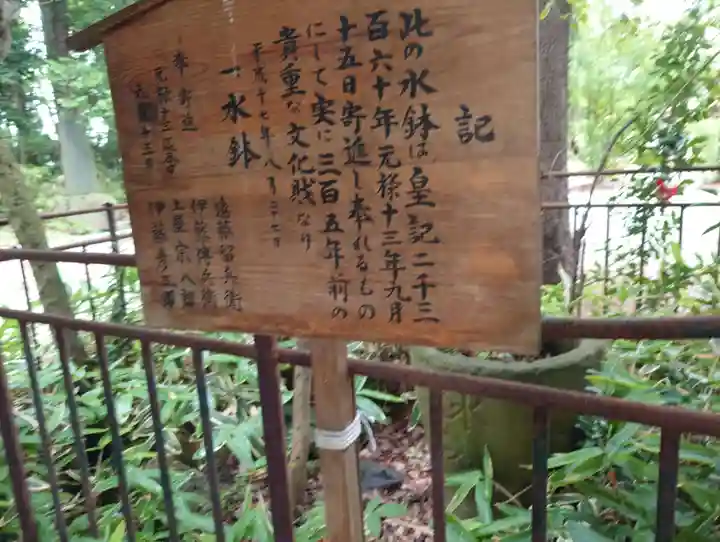 記
此の水鉢は皇記二千三
百六十年元禄十三年九月
十五日寄進し奉れるもの
にして実に三百五年前の
貴重な文化財なり
平成十七年八月二十七日
一水鉢
奉寄進
元禄十三
九月十五日
遠藤留兵衛
伊藤傳兵衛
土屋宗八郎
伊藤彦三郎